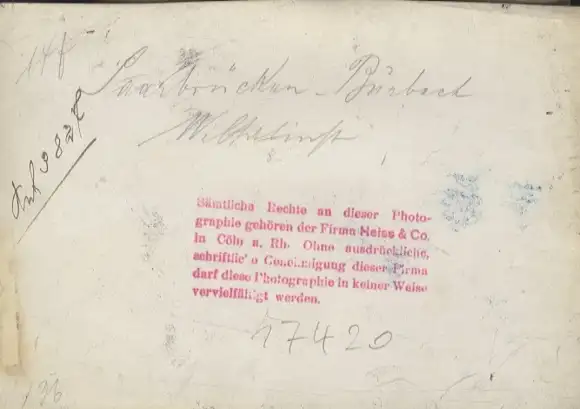 Saarbrücken - Burbach
Sämtliche Rechte an dieser Photo-
graphie gehören der Firma Heiss & Co.
in Cöln a. Rh. Ohne ausdrückliche,
schriftlic' e Genehmigung dieser Firma
darf diese Photographie in keiner Weise
vervielfältigt werden.
17420
136